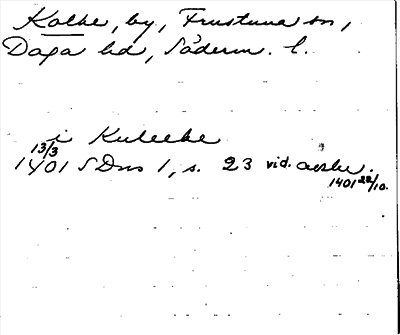 Kolke, by, Frustuna sn,
Daga hd, Söderm. l.
i Kuleeke
13/3
1401 SDns 1, s. 23 vid. avskr.
1401 22/10.